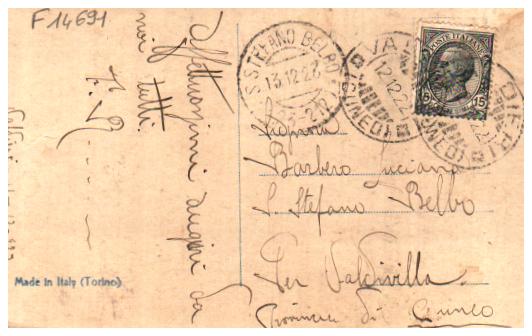 F14691
Affettuosissimi auguri da
noi tutti.
S. STEFANO BELBO
13.12.22
POSTE ITALIANE
15
12.12.22
(CUNEO)
Signora
Barbero Luciana
S. Stefano Belbo
Per Valdivilla
Provincia di Cuneo
Made in Italy (Torino)